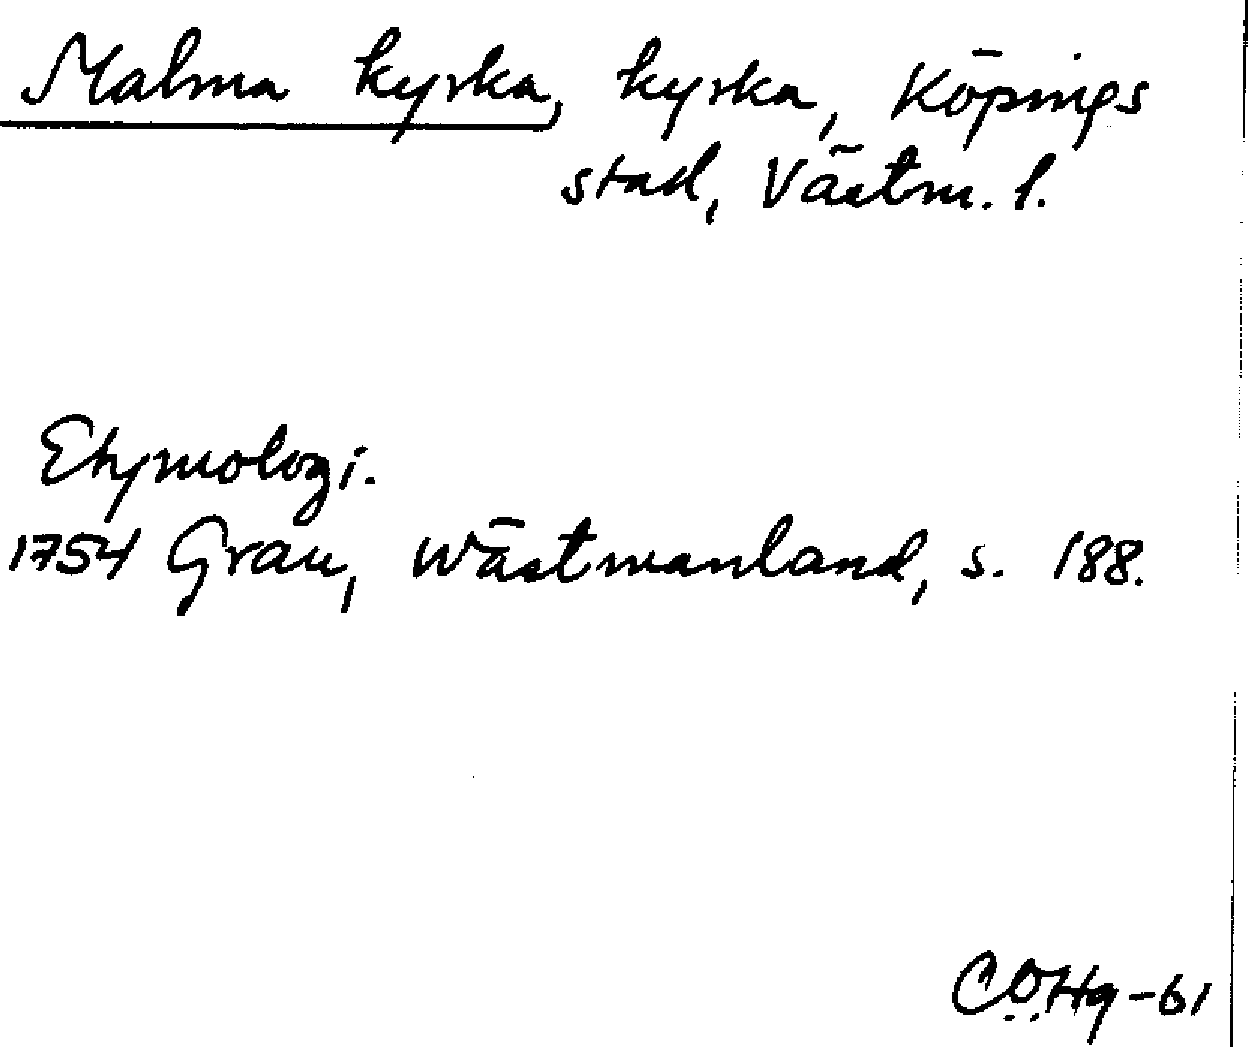 Malma kyrka, kyrka, Köpings
stad, Västm. l.
Etymologi.
1754 Grau, Wästmanland, s. 188.